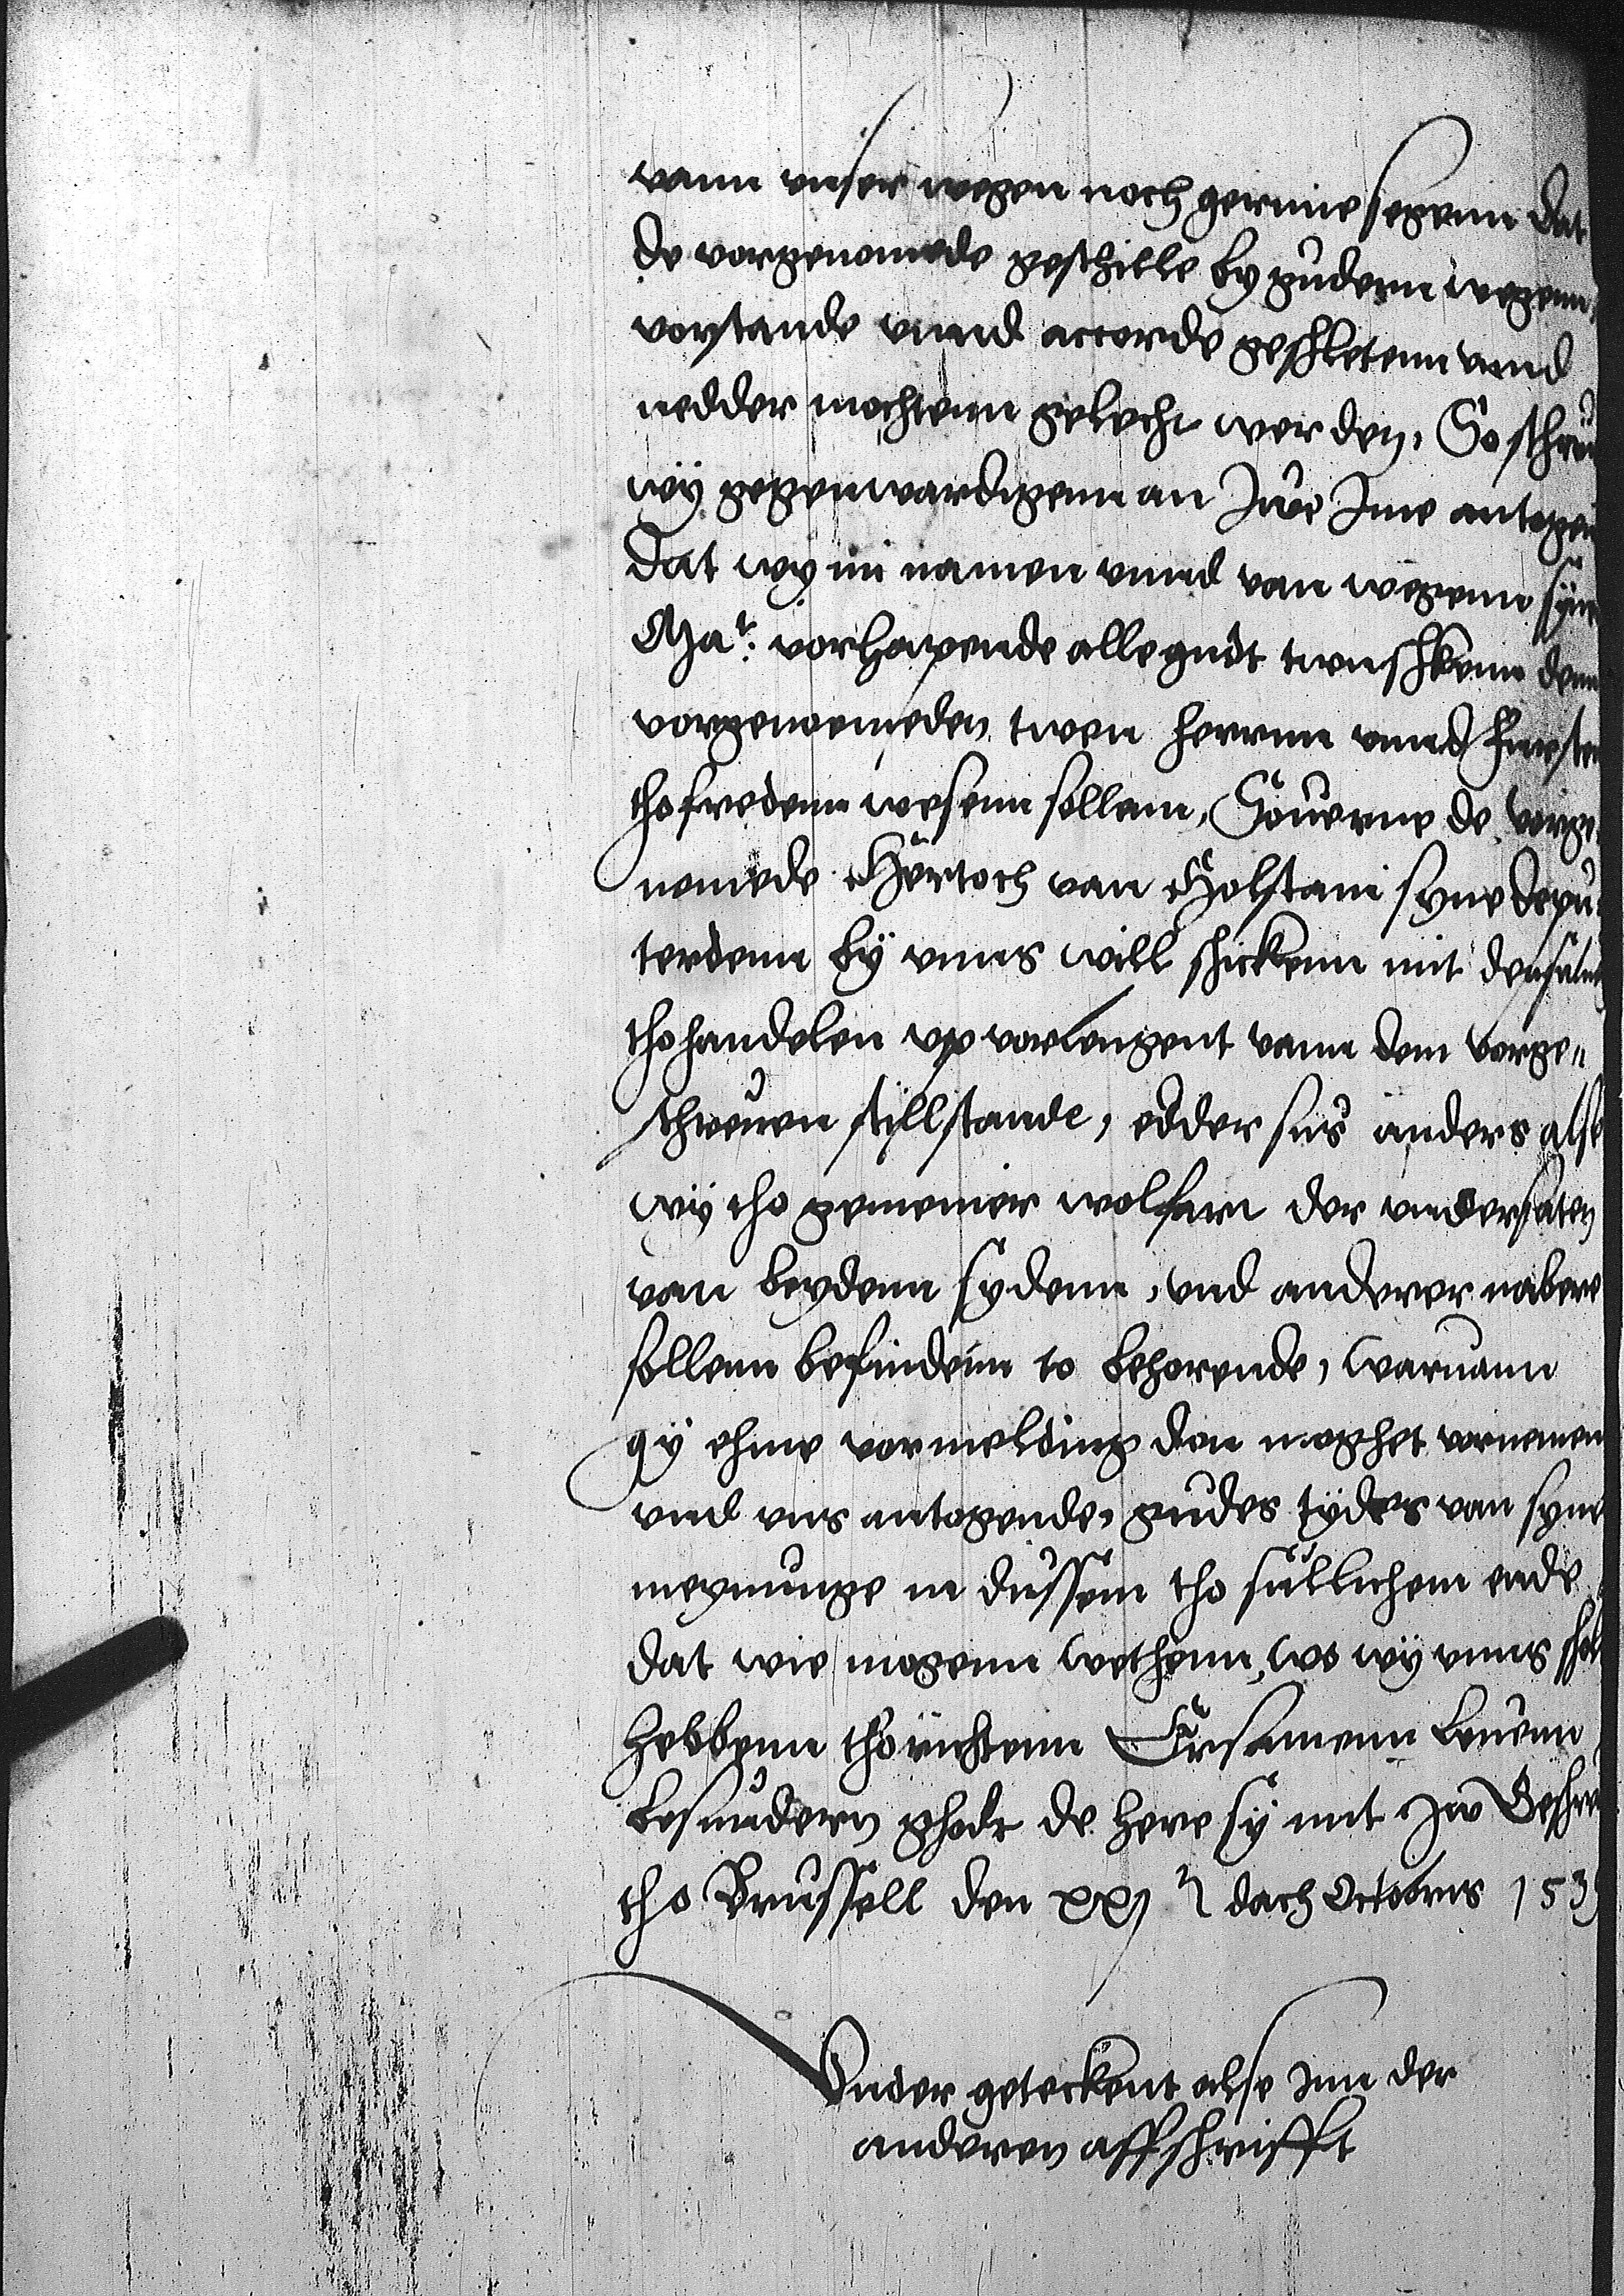 vann vnser wegen noch gerinne segenn dat
de vorgenomede geschille by gudenn wegenn
vorstande vnnd accorde geschletenn vnnd
nedder mochtenn gelecht werden, So schriu
wÿ gegenwardigenn an Juw Juw antogen
dat wy in namen vnnd van wegenn syn
Mat: vorhapende alle gudt twuschkenn denn
vorgenoemeden twen herrnn vnnd fursten
tho fredenn wesenn sollenn, Souerne de vorge
nomede Hertoch van Holstein syne depu
terdenn bÿ vnns will schickenn mit densulu
tho handelen vp vorlengent vann dem vorge„
schreuen stillstande, edder sus anders alse
wÿ tho gemeiner wolfart der vndersaten
van beydenn sydenn, vnd anderer naber
sollenn befindenn to behorende, waruann
gÿ ehme vormelding don moghet vornemen
vnd vns antogende, gudes tydes van syner
meynunge in dussem tho sullichem ende
dat wie mogenn wethenn, wo wÿ vnns schol
hebbenn tho richtenn Ersamenn leuenn
besundern ghode de here sÿ mit Juw Geschr
tho Brussell den xxj dach Octobris 153
Vnder geteckent alse inn der
anderen affschrifft